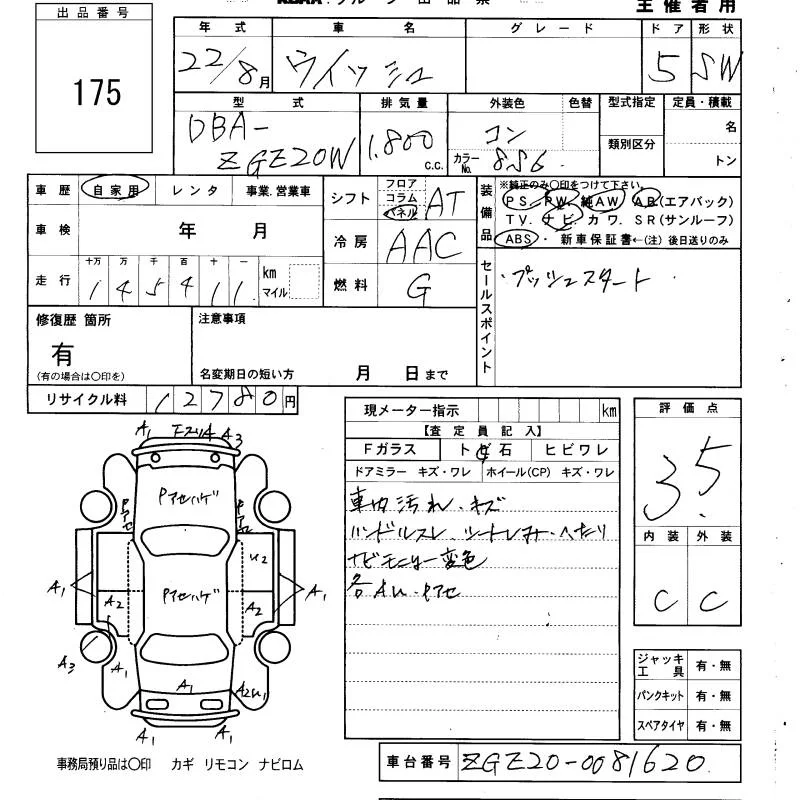 出品番号
175
主催者用
年式 車名 グレード ドア 形状
22/8月 ウイッシュ 5 SW
型式 排気量 外装色 色替 型式指定 定員・積載
DBA- ZGEZ20W 1.800 c.c. コン 名
カラーNo. 8S6 類別区分 トン
車歴 自家用 レンタ 事業.営業車
シフト フロア コラム パネル AT
装備品 ※純正のみ〇印をつけて下さい。
PS. PW. 純AW AB(エアバック)
TV. ナビ. カワ. SR(サンルーフ)
ABS・ 新車保証書←(注) 後日送りのみ
車検 年 月
冷房 AAC
走行 十万 万 千 百 十 一
1 4 5 4 1 1 km マイル
燃料 G
セールスポイント ・プッシュスタート
修復歴 箇所
有
(有の場合は〇印を)
注意事項
名変期日の短い方 月 日まで
リサイクル料 12780円
現メーター指示 km
【査定員記入】
Fガラス トビ石 ヒビワレ
ドアミラー キズ・ワレ ホイール(CP) キズ・ワレ
車内汚れ・キズ
ハンドルスレ、シートしみ・へたり
ナビモニター変色
各AU・Pアセ
評価点
3.5
内装 外装
C C
ジャッキ 工具 有・無
パンクキット 有・無
スペアタイヤ 有・無
A1 A3
Pアセハゲ
Pアセ
U2
Pアセハゲ
A1 A2 A2 A1
A3 A1 A1 A2U1
A1 A1
事務局預り品は〇印 カギ リモコン ナビロム
車台番号 ZGE20-0081620